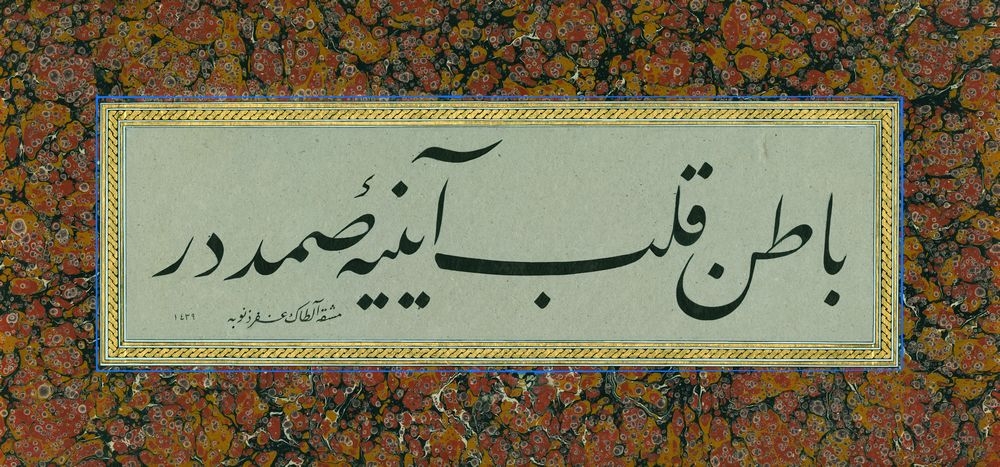 باطن قلب آیینیهٔ صمددر
مشقه آلطاك غفر ذنوبه
١٤٣٩